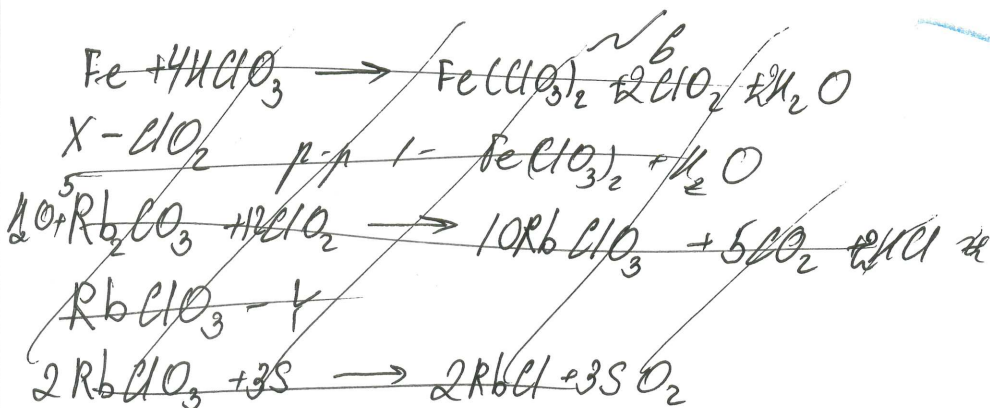 Fe + 4HClO3 → Fe(ClO3)2 + 2ClO2 + 2H2O
X - ClO2 р-р 1 - Fe(ClO3)2 + H2O
H2O + 5Rb2CO3 + 12ClO2 → 10RbClO3 + 5CO2 + 2HCl
RbClO3 - Y
2RbClO3 + 3S → 2RbCl + 3SO2